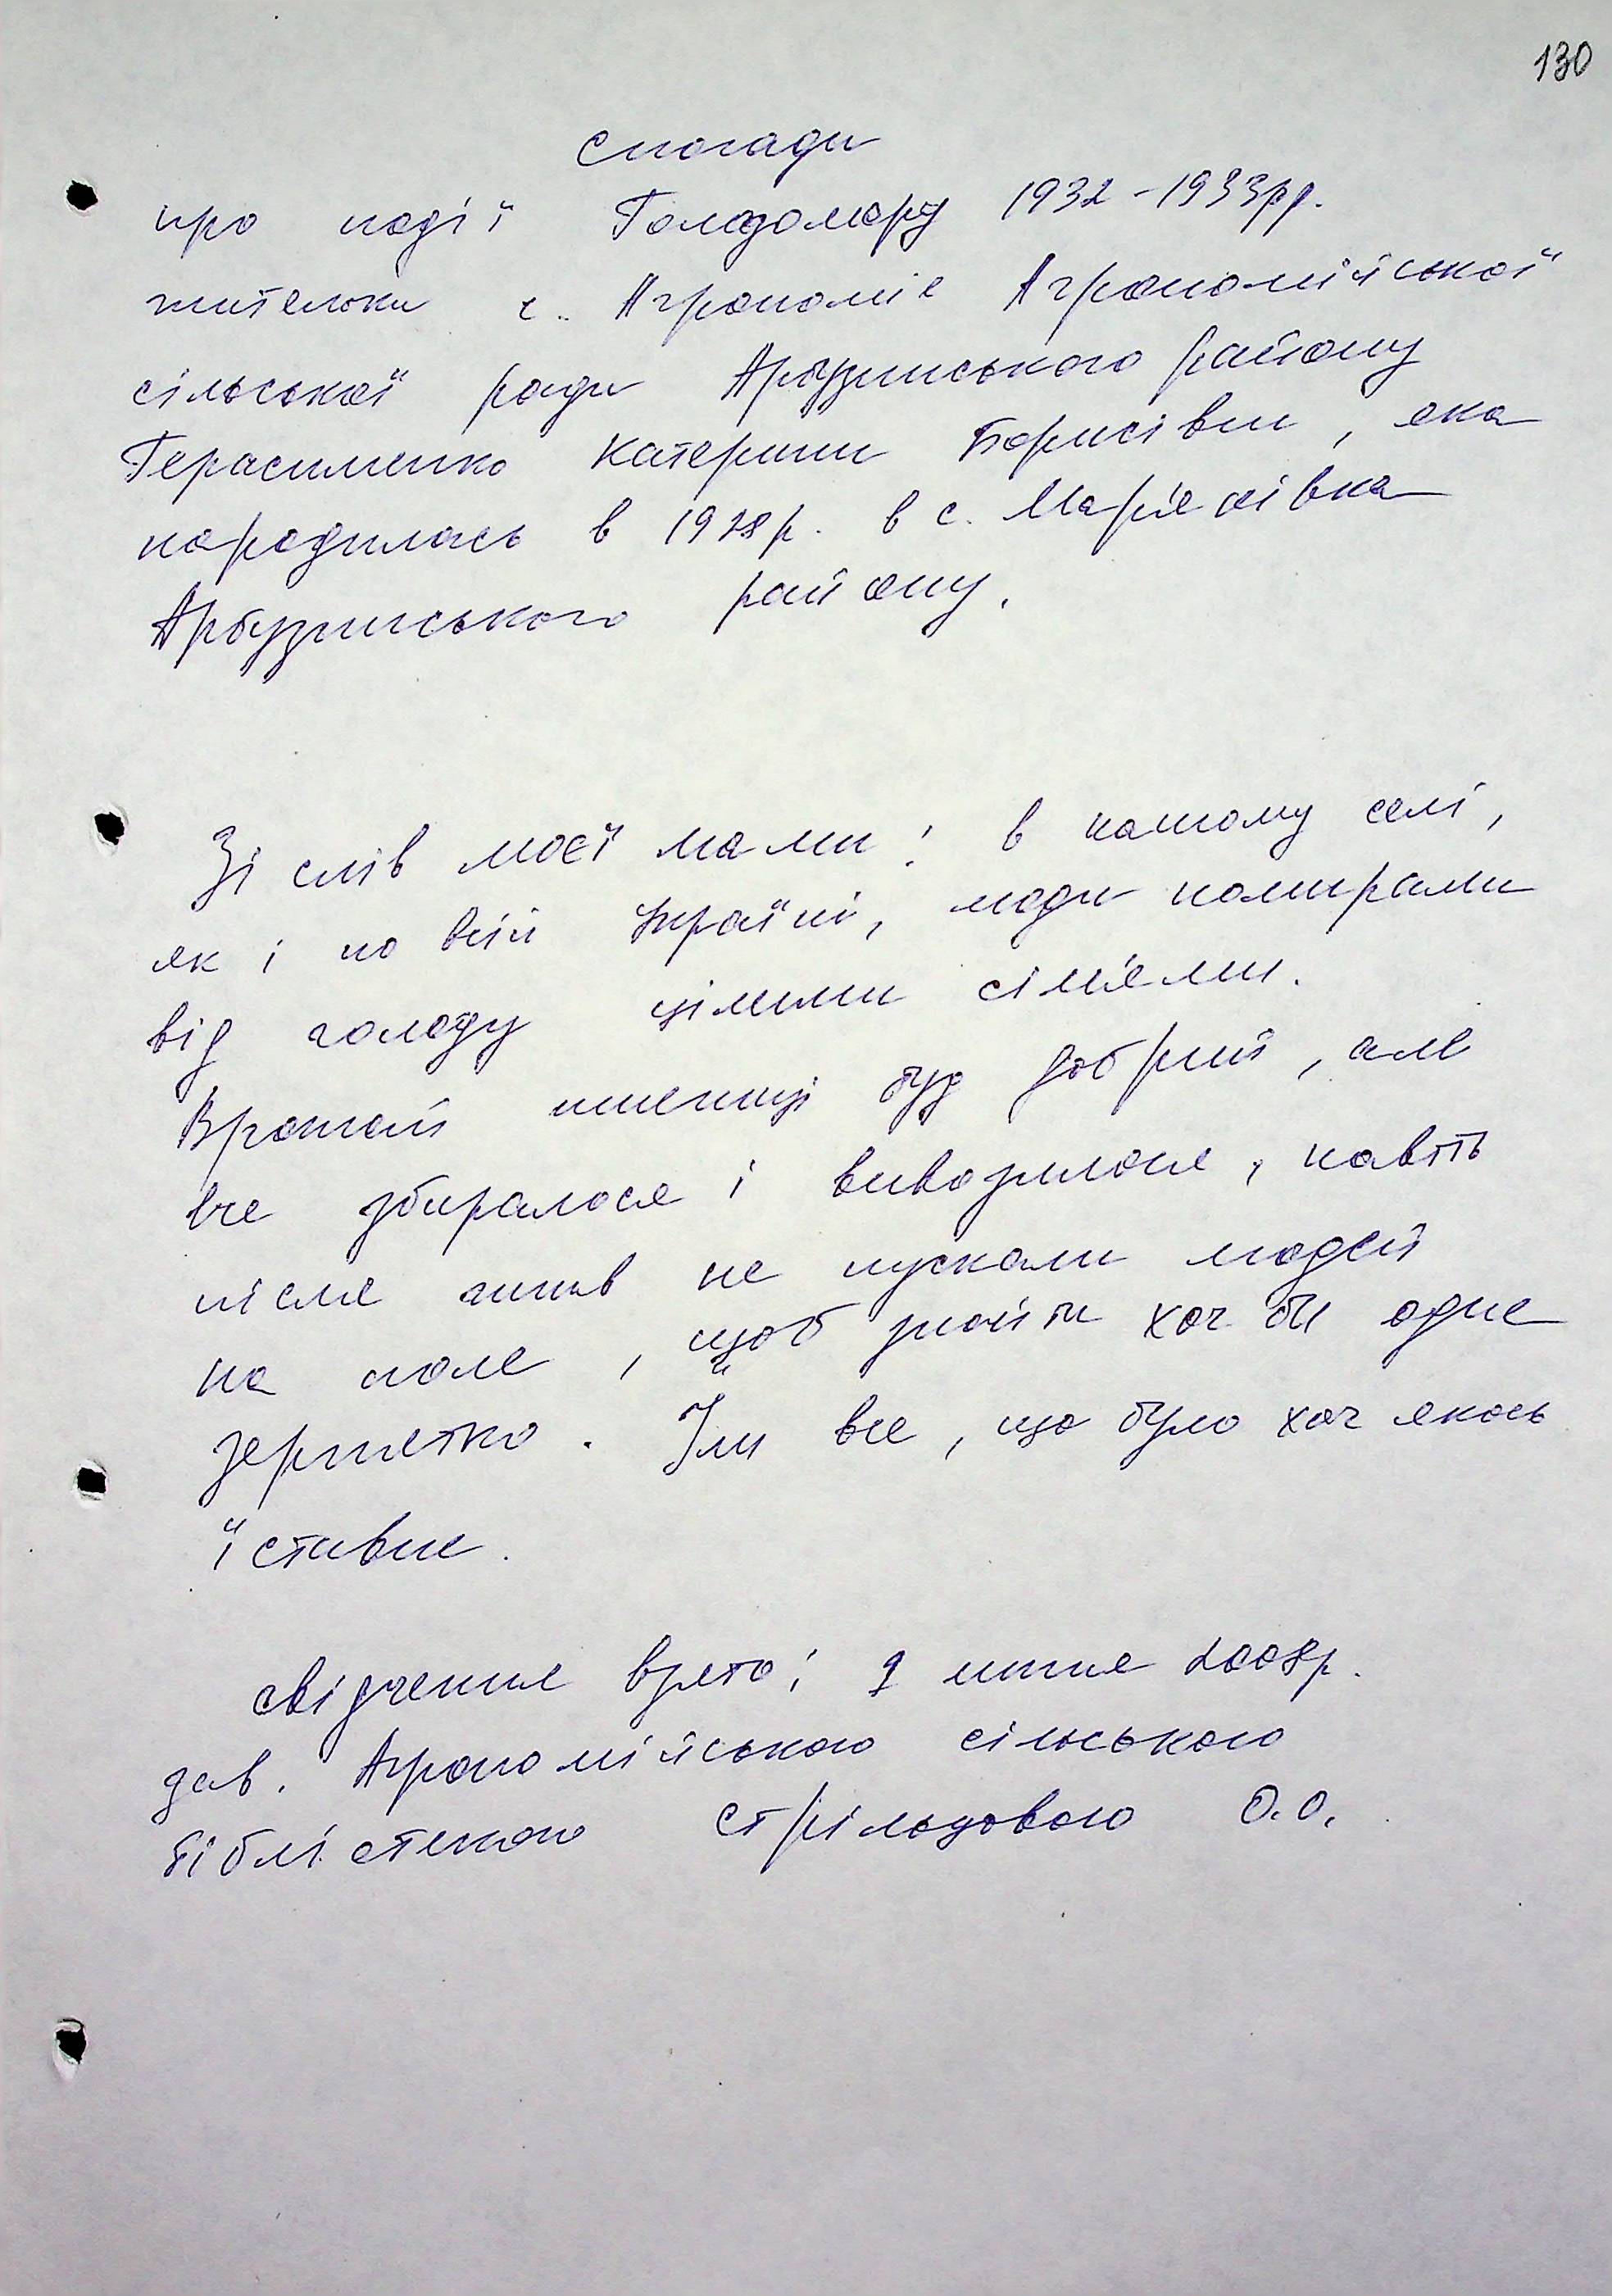 130
Спогади
про події Голодомору 1932-1933рр.
жительки с. Агрономія Агрономійської
сільської ради Арбузинського району
Герасименко Катерини Борисівни, яка
народилась в 1928р. в с. Мар'янівка
Арбузинського району.
Зі слів моєї мами: в нашому селі,
як і по всій Україні, люди помирали
від голоду цілими сім'ями.
Врожай пшениці був добрий, але
все збиралося і вивозилося, навіть
після жнив не пускали людей
на поле, щоб знайти хоч би одне
зернятко. Їли все, що було хоч якось
їстивне.
Свідчення взято: 9 липня 2008р.
зав. Агрономійською сільською
бібліотекою Стрільцовою О.О.